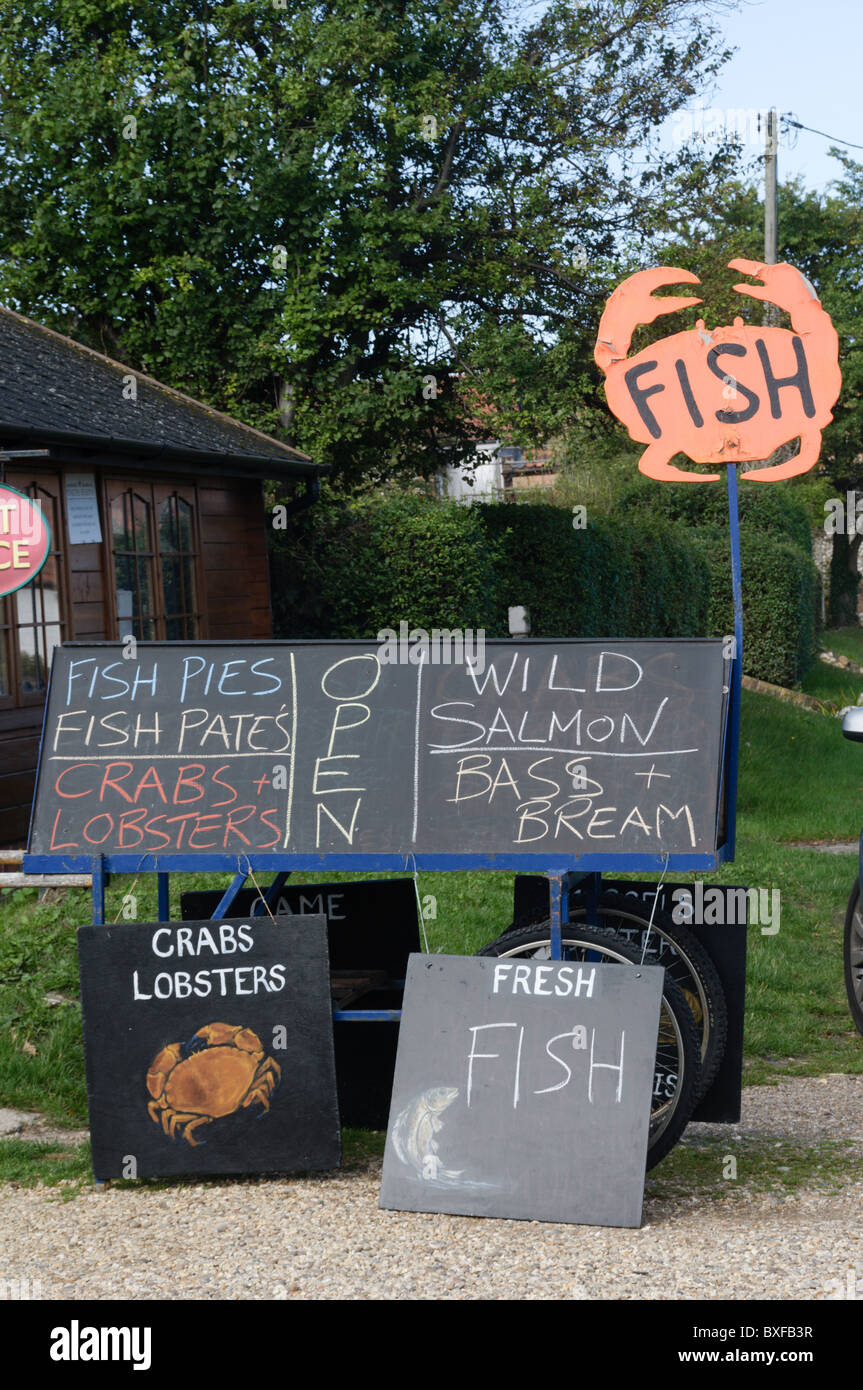 FISH
FISH PIES
FISH PATE'S
CRABS +
LOBSTERS
OPEN
WILD
SALMON
BASS +
BREAM
GAME
CRABS
LOBSTERS
FRESH
FISH
alamy
Image ID: BXFB3R
www.alamy.com